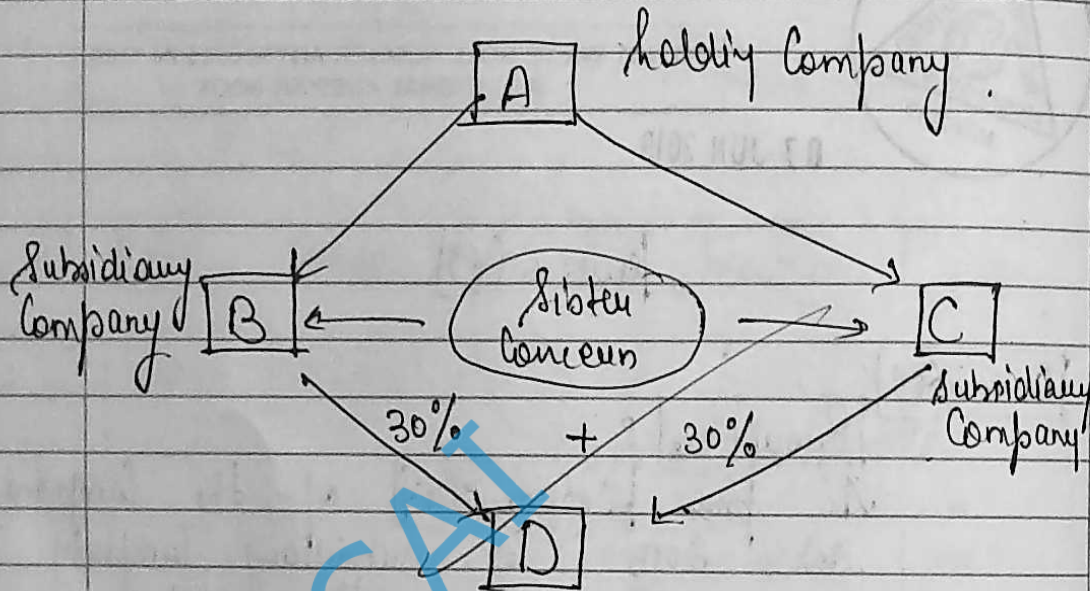 A
holding Company.
Subsidiary
Company
B
Sister
Concern
C
Subsidiary
Company
30% + 30%
D
CAI